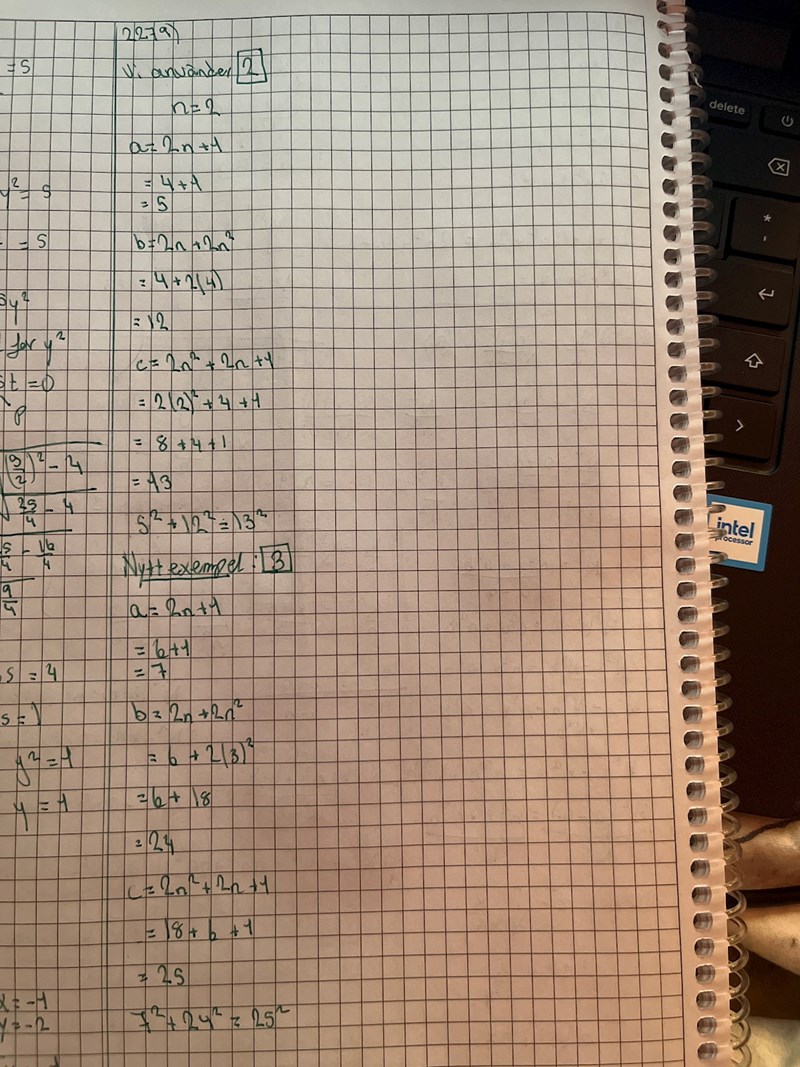 = 5
y² = 5
= 5
5y²
för y²
5t = 0
p
(5/2)² - 4
√25/4 - 4
5/4 - 16/4
9/4
s = 4
s = 1
y² = 1
y = 1
x = -1
y = -2
227a)
Vi använder 2
n = 2
a = 2n + 1
= 4 + 1
= 5
b = 2n + 2n²
= 4 + 2(4)
= 12
c = 2n² + 2n + 1
= 2(2)² + 4 + 1
= 8 + 4 + 1
= 13
5² + 12² = 13²
Nytt exempel : 3
a = 2n + 1
= 6 + 1
= 7
b = 2n + 2n²
= 6 + 2(3)²
= 6 + 18
= 24
c = 2n² + 2n + 1
= 18 + 6 + 1
= 25
7² + 24² = 25²
delete
*
'
>
intel
processor